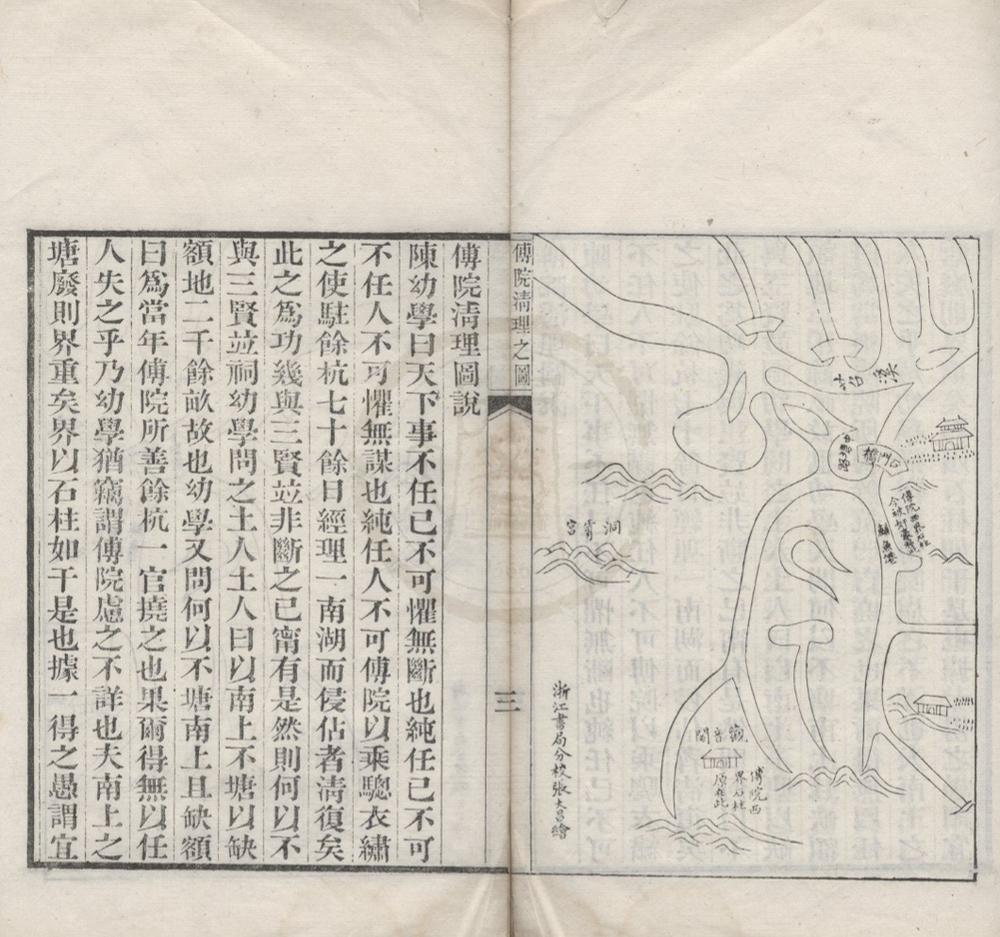 苕溪
石門橋
洞霄宮
觀音閣
傅院西
界石柱
原在此
浙江書局分校張大昌繪
傅院清理之圖
三
傅院清理圖說
陳幼學曰天下事不任已不可懼無斷也純任已不可
不任人不可懼無謀也純任人不可傅院以乘驄衣繡
之使駐餘杭七十餘日經理一南湖而侵佔者清復矣
此之爲功幾與三賢竝非斷之已甯有是然則何以不
與三賢竝祠幼學問之土人土人曰以南上不塘以缺
額地二千餘畝故也幼學又問何以不塘南上且缺額
曰爲當年傅院所善餘杭一官撓之也果爾得無以任
人失之乎乃幼學猶竊謂傅院慮之不詳也夫南上之
塘廢則界重矣界以石柱如干是也據一得之愚謂宜